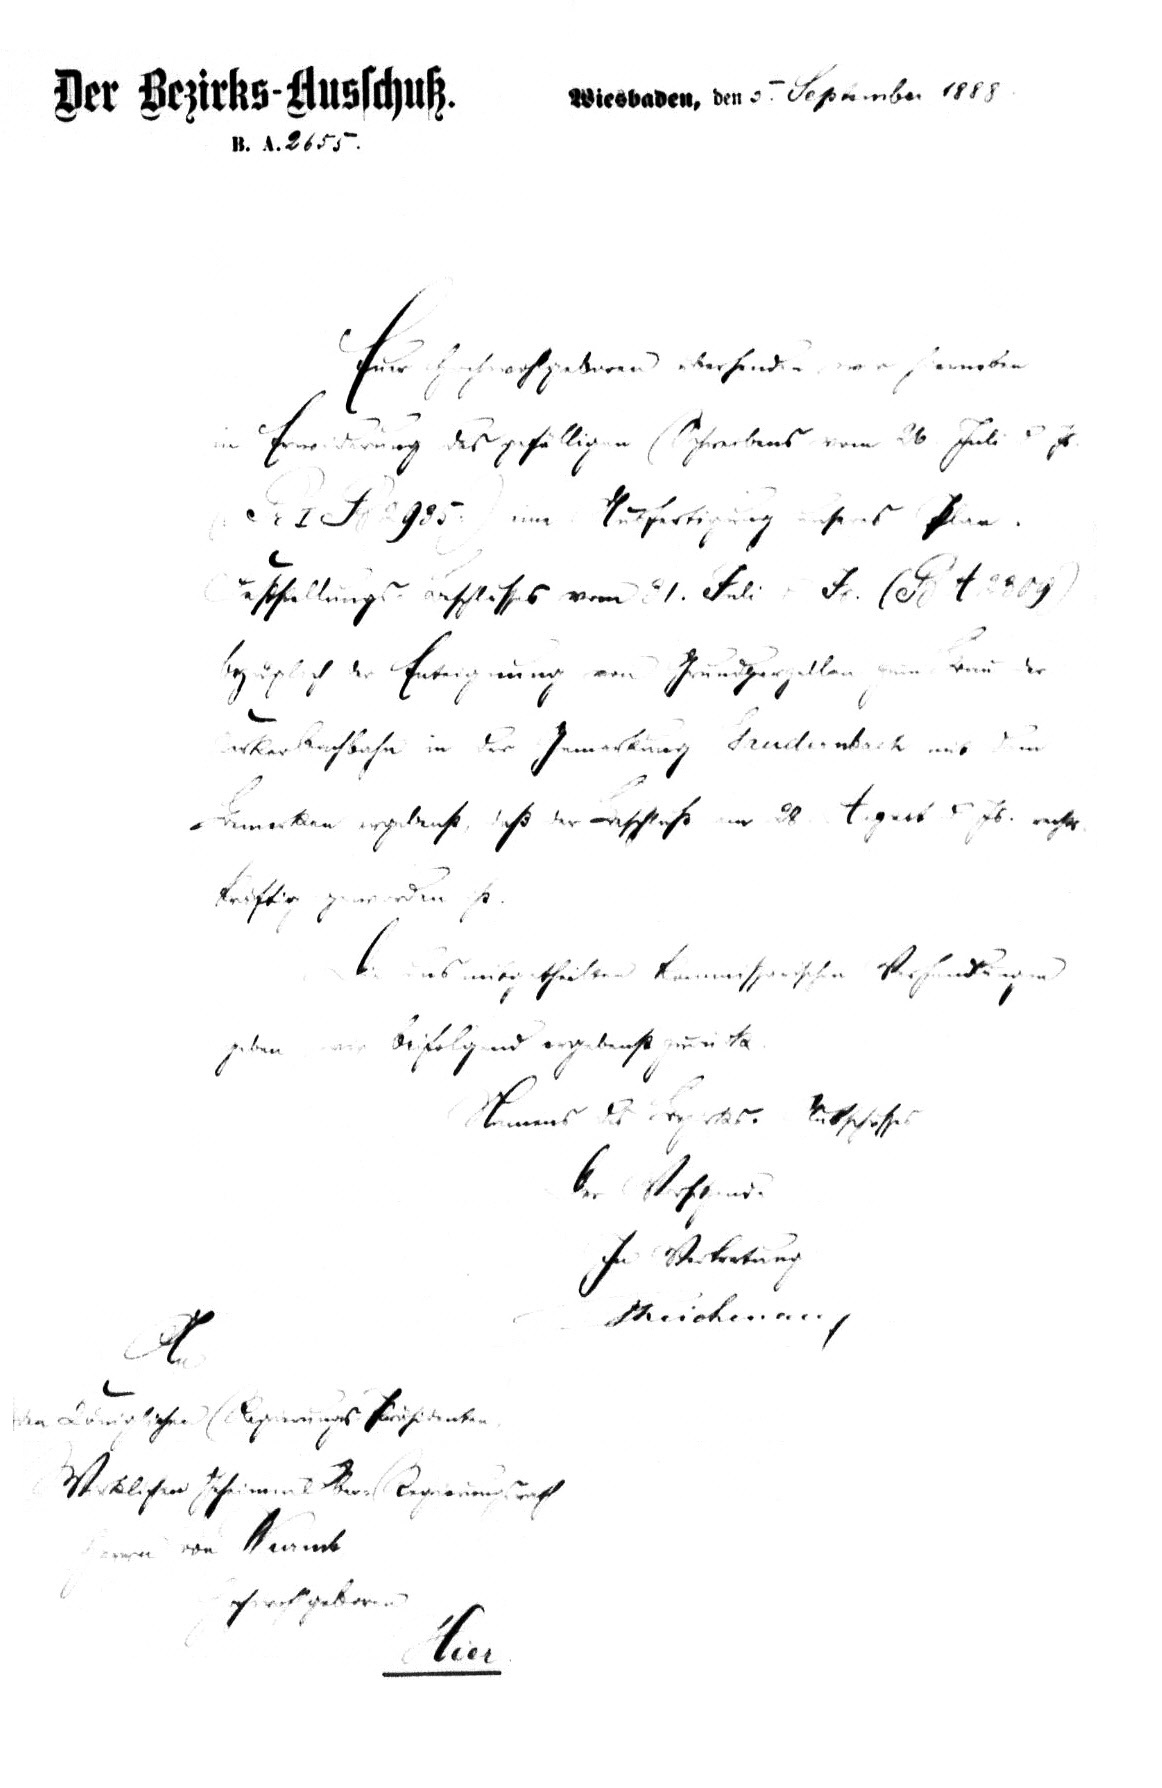 Der Bezirks-Ausschuß. Wiesbaden, den 5. September 1888.
B. A. 2655.
Euer Hochwohlgeboren übersenden wir hierneben
in Erwiderung des gefälligen Schreibens vom 26 Juli d Js.
(Pr I 2985.) eine Ausfertigung unseres Plan-
Feststellungs-Beschlusses vom 31. Juli d Js. (2809)
bezüglich der Enteignung von Grundparzellen zum Bau der
Kerkerbachbahn in der Gemarkung mit dem
Bemerken ergebenst, daß der Beschluß am 28 August d Js. rechts-
kräftig geworden ist.
Die uns mitgetheilten kommissarischen Verhandlungen
geben wir beifolgend ergebenst zurück.
Namens des Bezirks-Ausschusses
Der Vorsitzende
In Vertretung
An
den Königlichen Regierungs-Präsidenten,
Wirklichen Geheimen Ober-Regierungsrath
Herrn von Wurmb
Hochwohlgeboren
Hier.